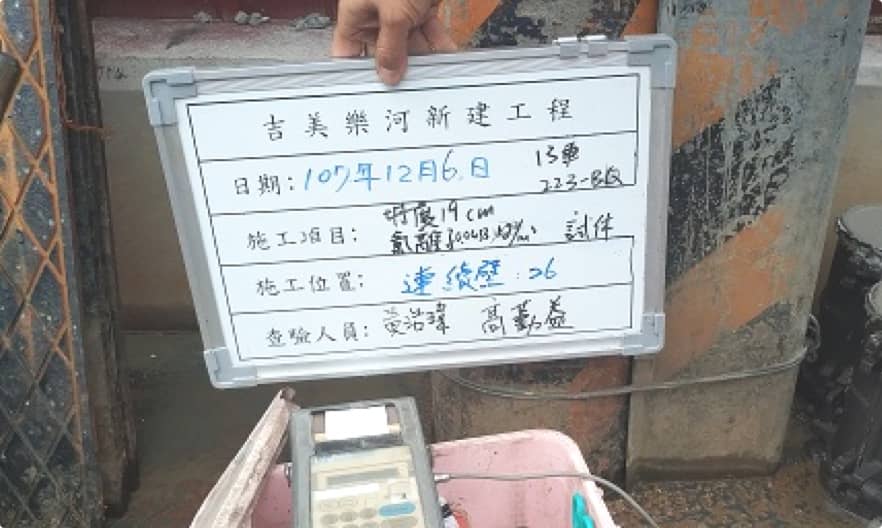 吉美樂河新建工程
日期：107年12月6日 13車
223-BQ
施工項目：坍度19cm
氯離子0.0413 kg/m³ 試体
施工位置：連續壁:26
查驗人員：黃浩瑋 高勤益